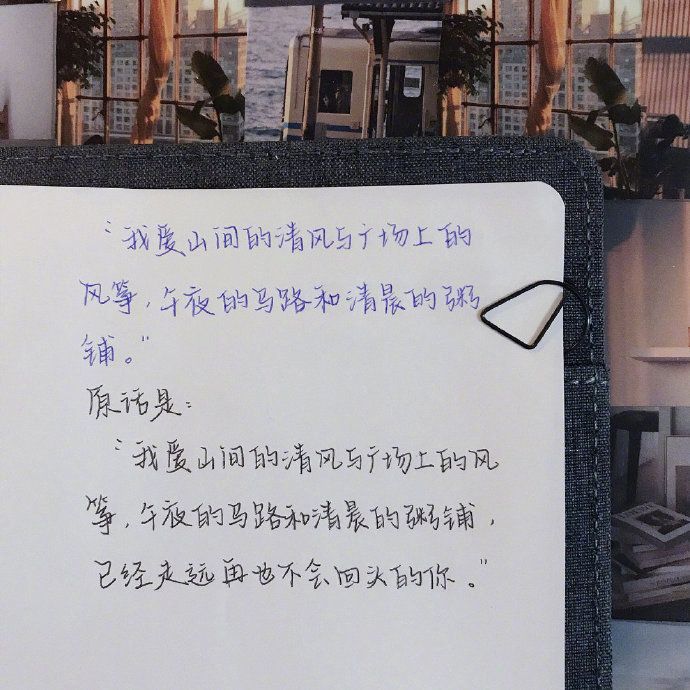 “我爱山间的清风与广场上的
风筝，午夜的马路和清晨的粥
铺。”
原话是：
“我爱山间的清风与广场上的风
筝，午夜的马路和清晨的粥铺，
已经走远再也不会回头的你。”